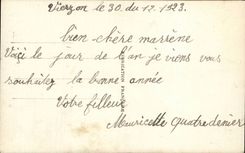 Vierzon le 30. du 12. 1923.
bien chère marrène
Voiçi le jour de l'an je viens vous
souhaitez la bonne année
Votre filleue
Mauricette quatredenier